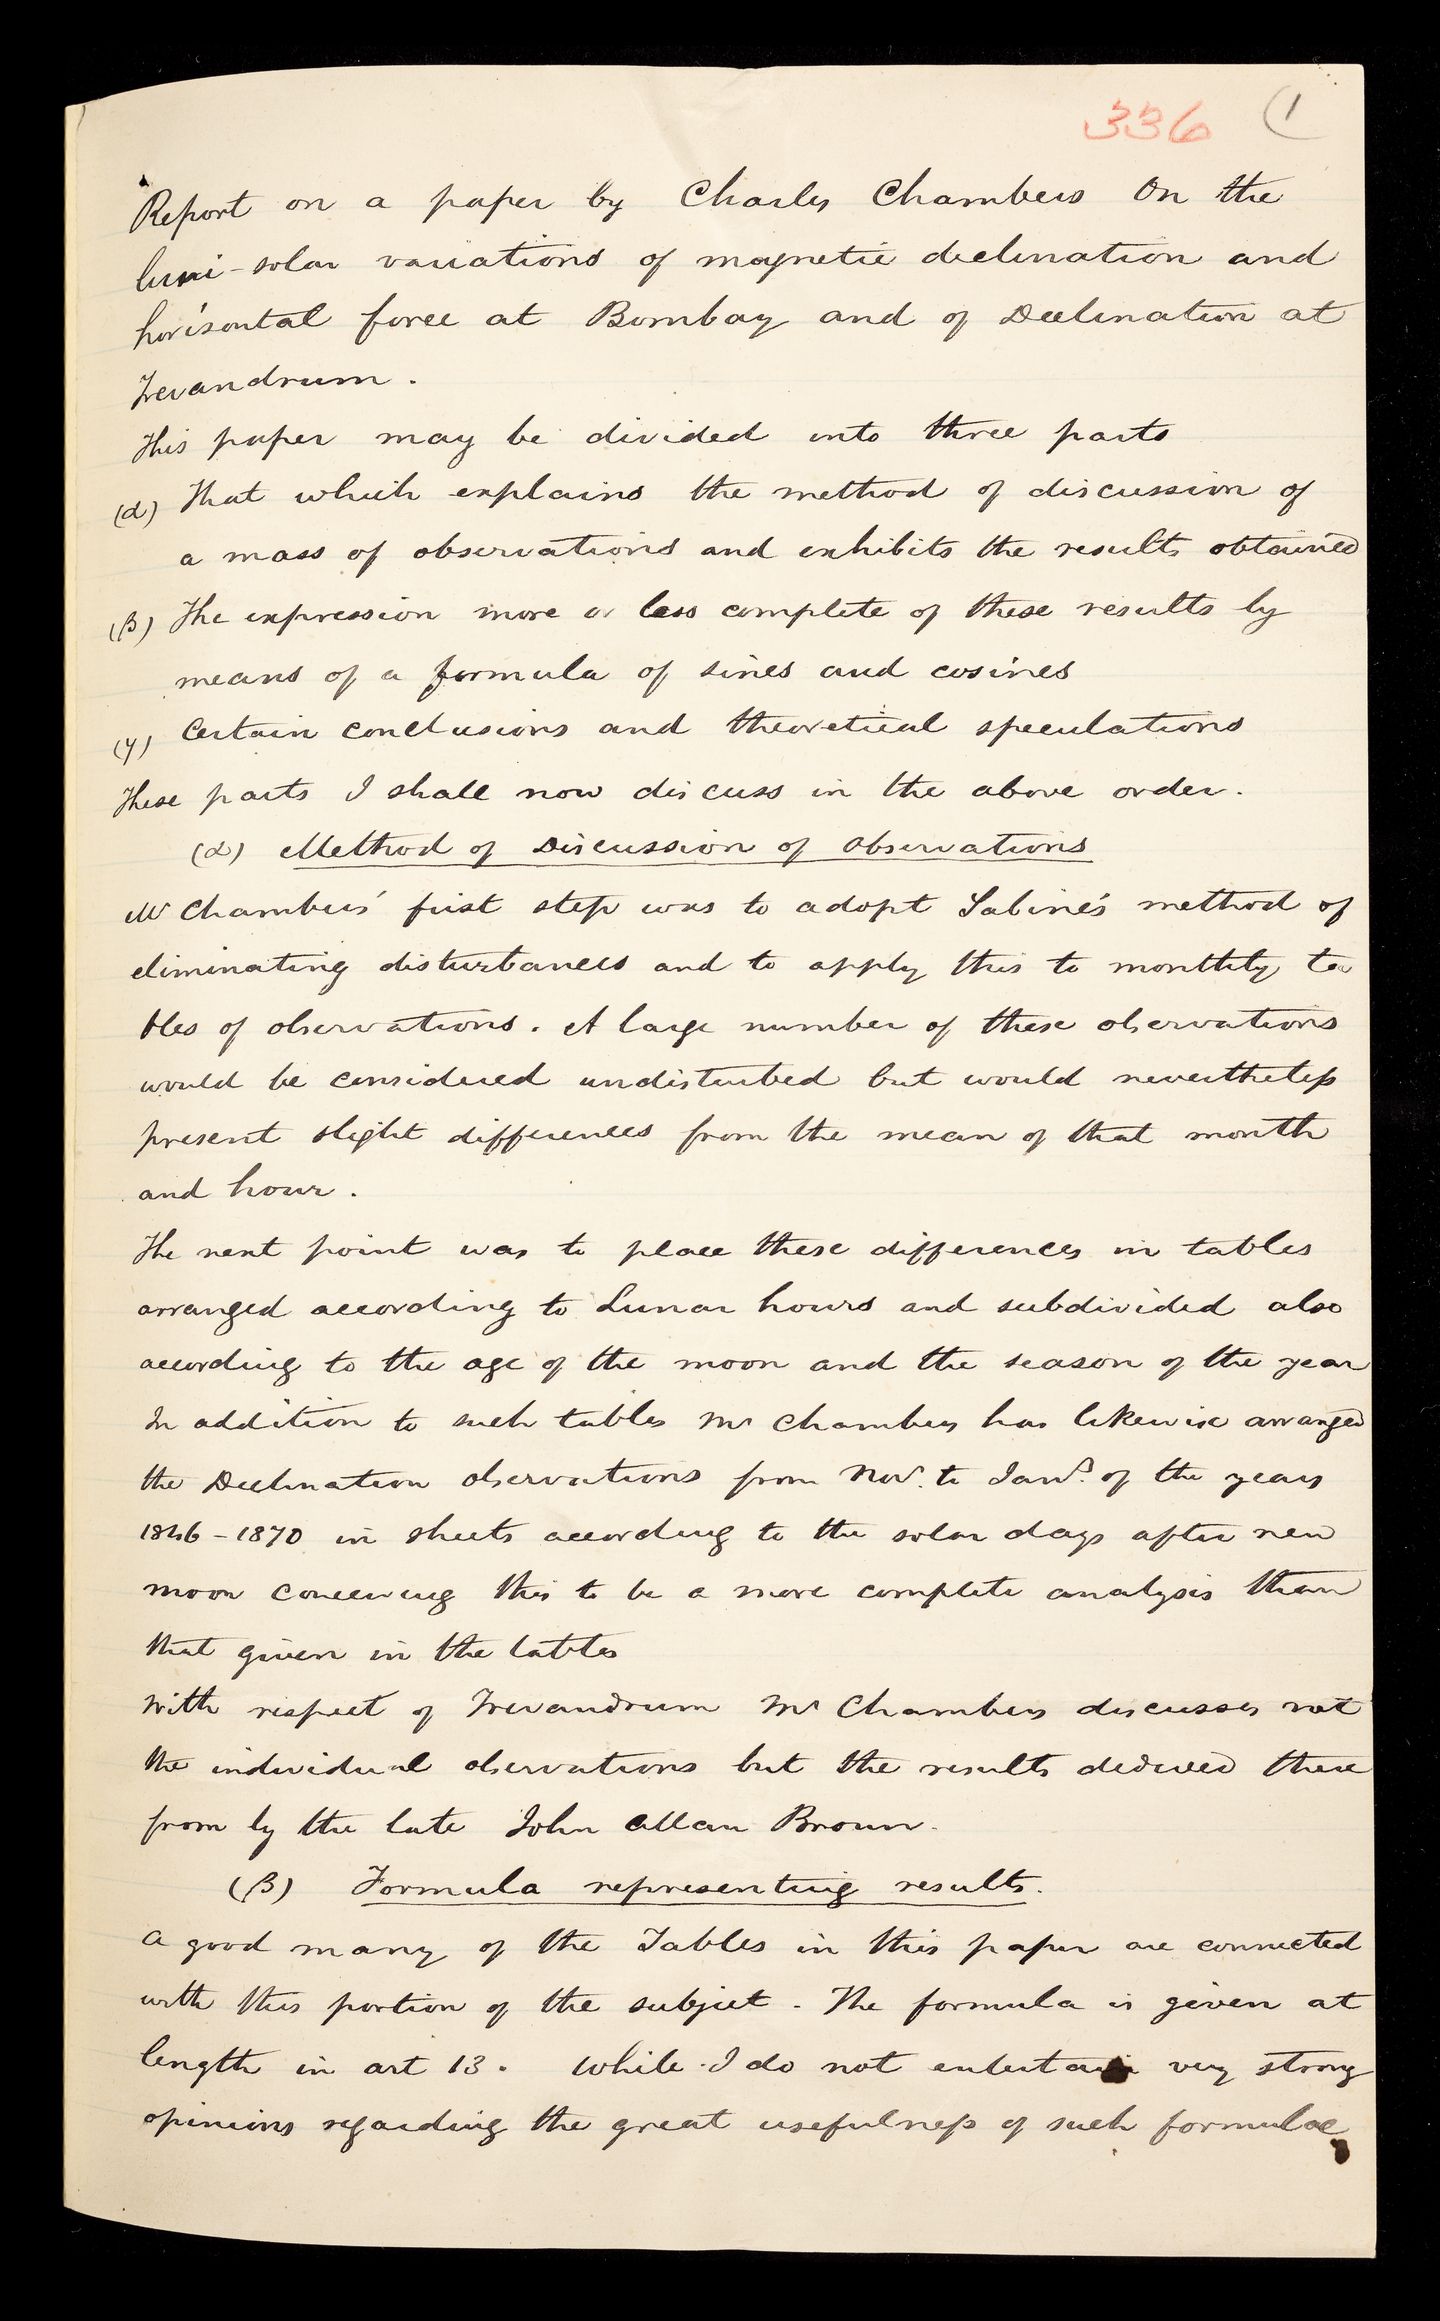 336 (1
Report on a paper by Charles Chambers On the
luni-solar variations of magnetic declination and
horizontal force at Bombay and of Declination at
Trevandrum.
This paper may be divided into three parts
(α) That which explains the method of discussion of
a mass of observations and exhibits the results obtained
(β) The expression more or less complete of these results by
means of a formula of sines and cosines
(γ) Certain conclusions and theoretical speculations
These parts I shall now discuss in the above order.
(α) Method of Discussion of Observations
Mr Chambers' first step was to adopt Sabine's method of
eliminating disturbances and to apply this to monthly ta
bles of observations. A large number of these observations
would be considered undisturbed but would nevertheless
present slight differences from the mean of that month
and hour.
The next point was to place these differences in tables
arranged according to Lunar hours and subdivided also
according to the age of the moon and the season of the year
In addition to such tables Mr Chambers has likewise arranged
the Declination observations from Nov. to Jany. of the years
1846-1870 in sheets according to the solar days after new
moon conceiving this to be a more complete analysis than
that given in the tables
With respect of Trevandrum Mr Chambers discusses not
the individual observations but the results deduced there
from by the late John Allan Broun.
(β) Formula representing results.
A good many of the Tables in this paper are connected
with this portion of the subject. The formula is given at
length in art 13. While I do not entertain very strong
opinions regarding the great usefulness of such formulae